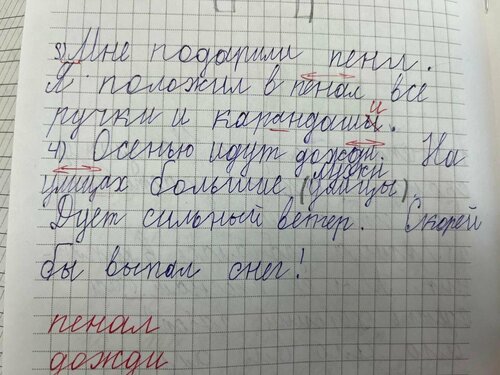 3) Мне подарили пенл.
Я положил в пенал все
ручки и карандашы и.
4) Осенью идут дожди. На
улицах большие (улицы) лужи
Дует сильный ветер. Скорей
бы выпал снег!
пенал
дожди